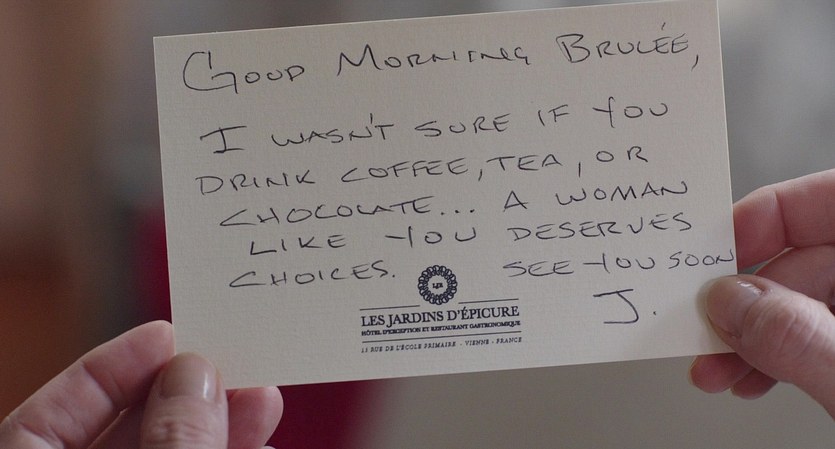 GOOD MORNING BRULÉE,
I WASN'T SURE IF YOU
DRINK COFFEE, TEA, OR
CHOCOLATE... A WOMAN
LIKE YOU DESERVES
CHOICES. SEE YOU SOON
J.
LJE
LES JARDINS D'ÉPICURE
HÔTEL D'EXCEPTION ET RESTAURANT GASTRONOMIQUE
11 RUE DE L'ÉCOLE PRIMAIRE - VIENNE - FRANCE